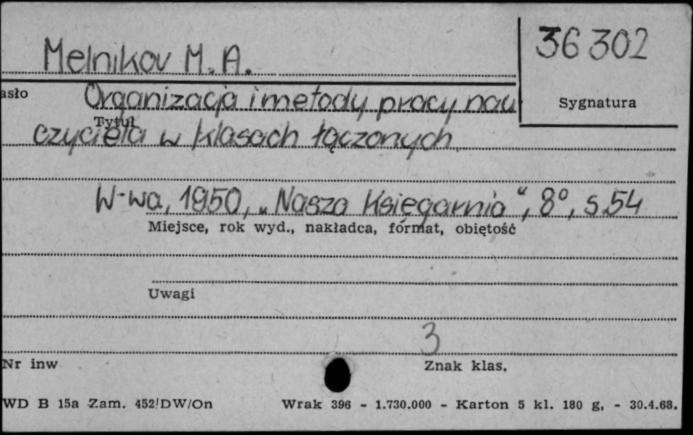 Melnikov M. A.
36302
asło
Organizacja i metody pracy nau
Sygnatura
Tytuł
czyciela w klasach łączonych
W-wa, 1950, „Nasza Księgarnia“, 8°, s.54
Miejsce, rok wyd., nakładca, format, obiętość
Uwagi
3
Nr inw
Znak klas.
WD B 15a Zam. 452/DW/On
Wrak 396 - 1.730.000 - Karton 5 kl. 180 g. - 30.4.68.